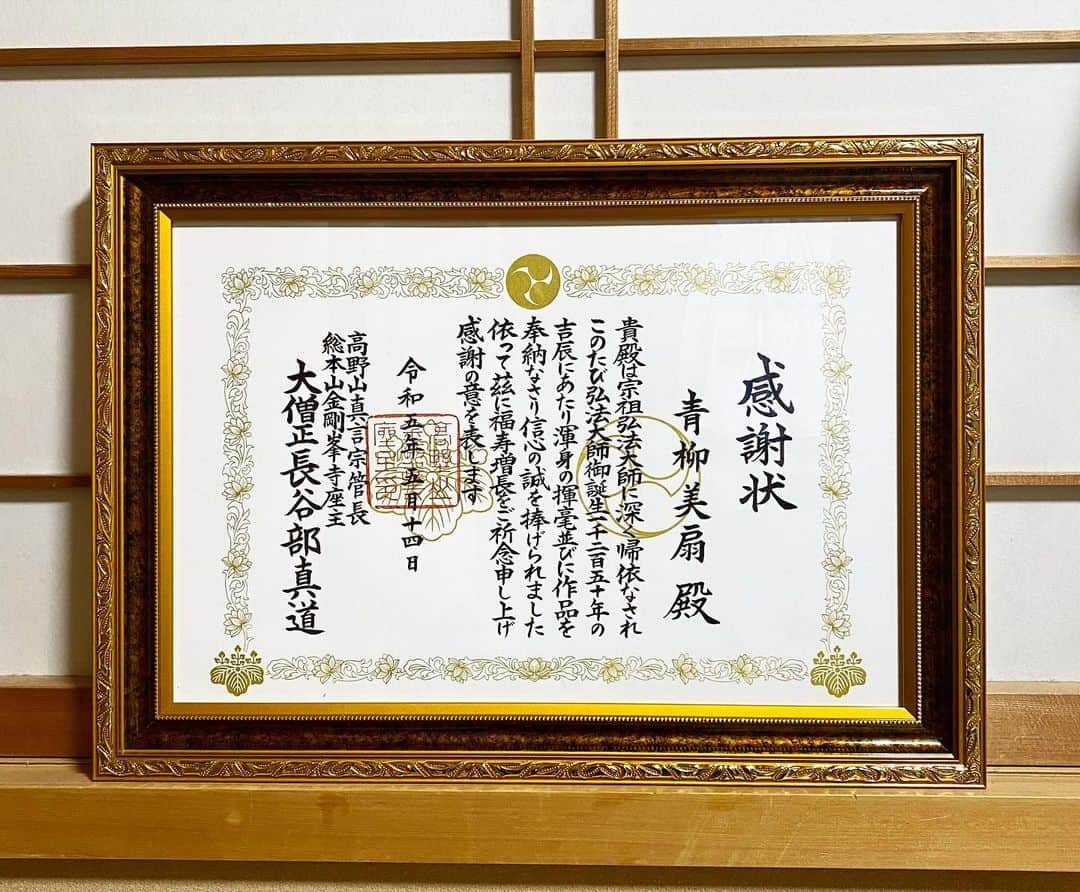 感謝状
青柳美扇殿
貴殿は宗祖弘法大師に深く帰依なされ
このたび弘法大師御誕生一千二百五十年の
吉辰にあたり渾身の揮毫並びに作品を
奉納なさり信心の誠を捧げられました
依って玆に福寿増長をご祈念申し上げ
感謝の意を表します
令和五年五月十四日
高野山真言宗管長
総本山金剛峯寺座主
大僧正長谷部真道